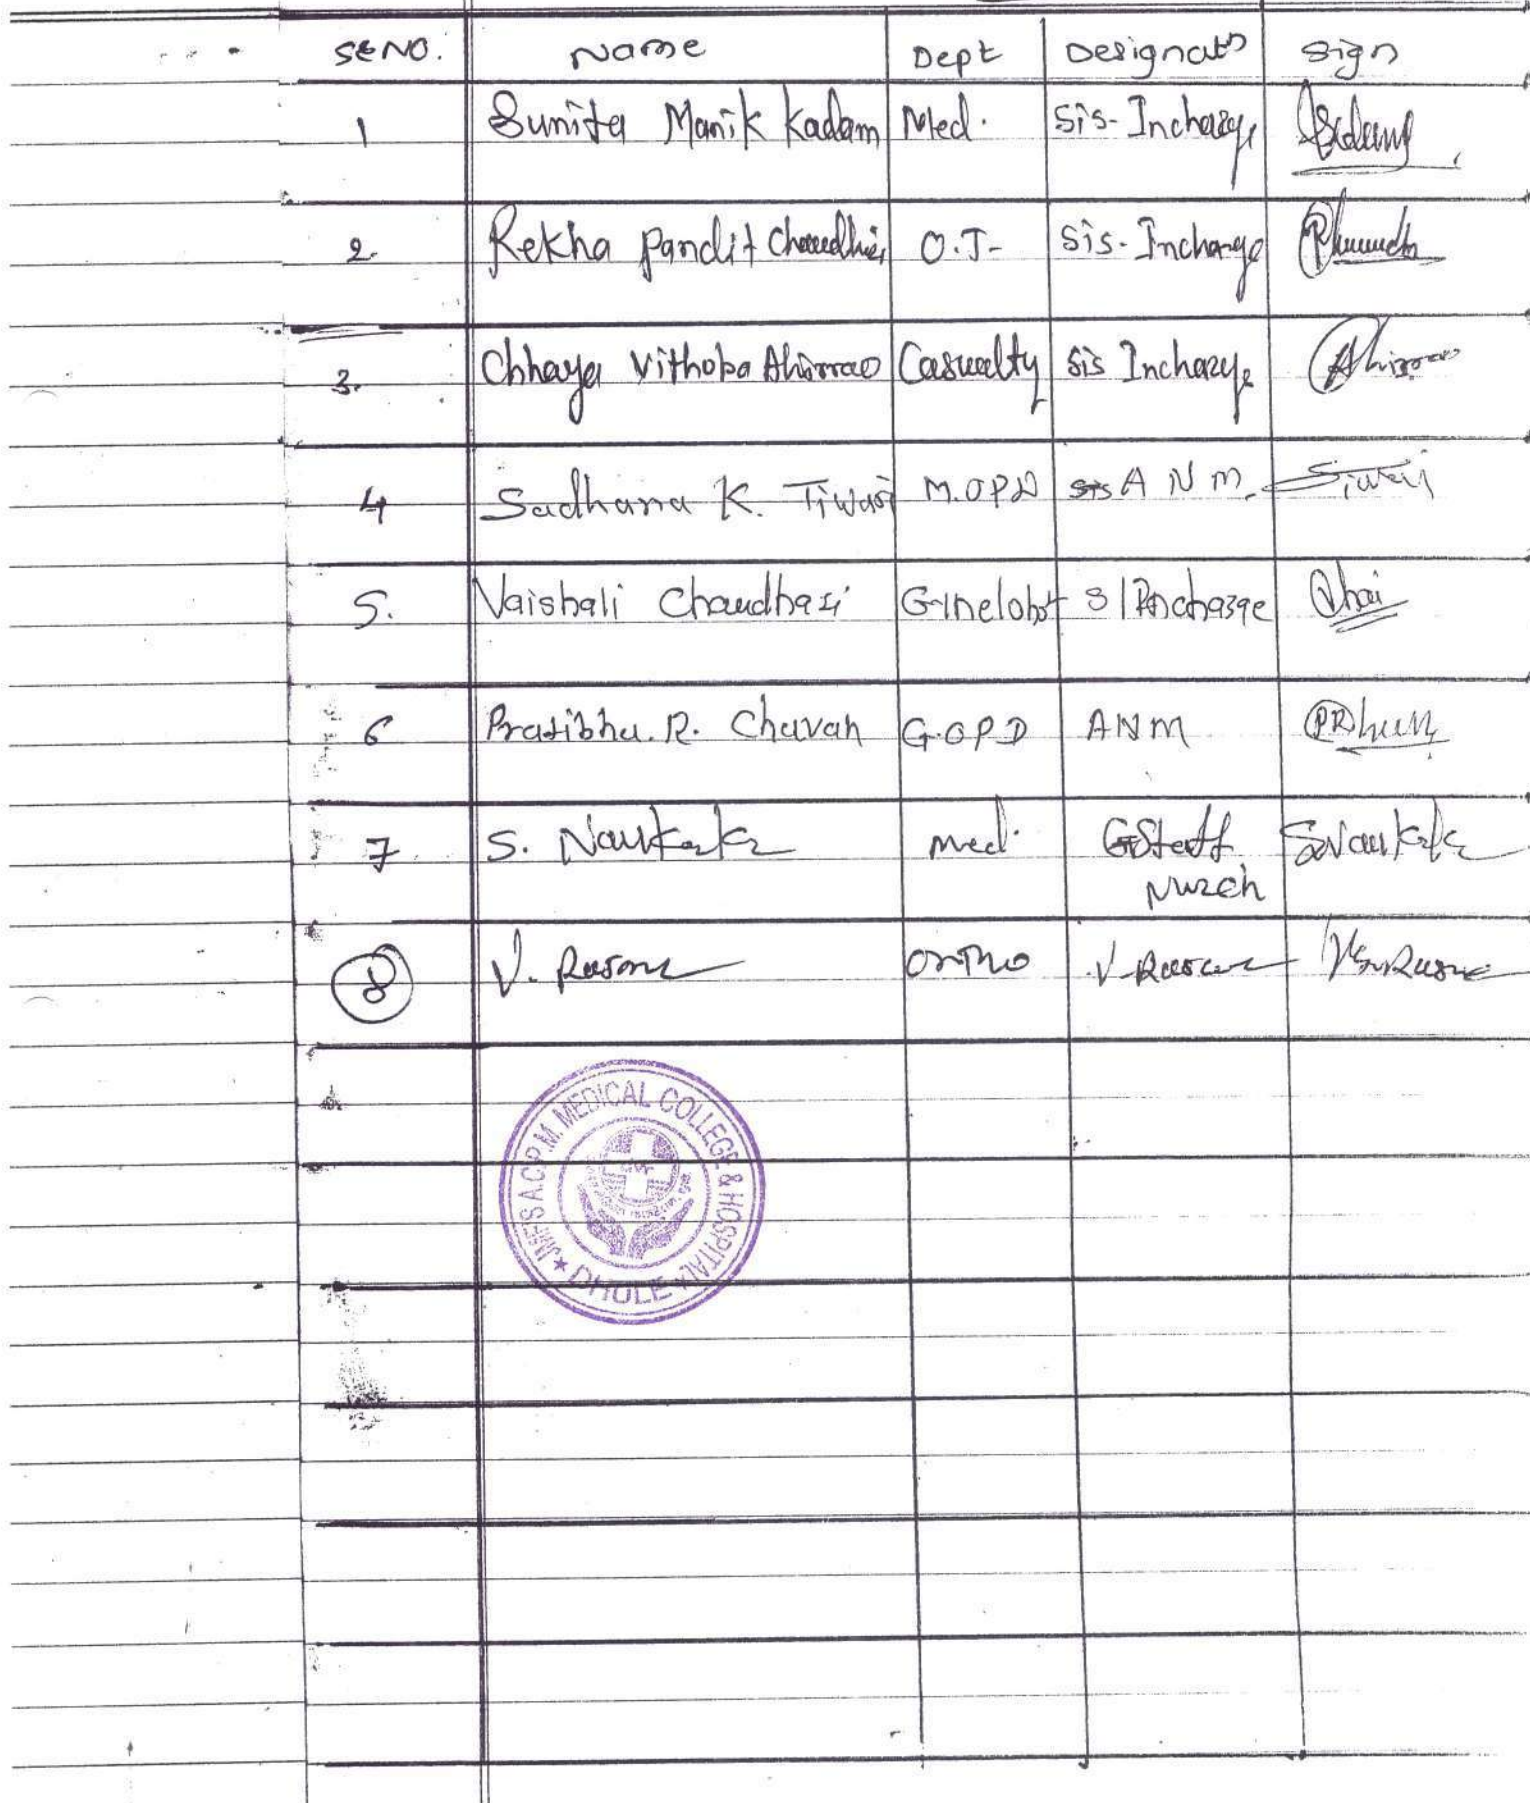 Sr NO. Name Dept Designatn Sign
1 Sunita Manik Kadam Med. Sis-Incharge Kadam
2. Rekha Pandit Chaudhari O.T- Sis-Incharge
3. Chhaya Vithoba Ahirrao Casualty Sis Incharge Ahirrao
4 Sadhana K. Tiwari M.OPD A N M. Tiwari
5. Vaishali Chaudhari S/Incharge
6 Pratibha. R. Chavan G.OPD ANM
7 S. Med. GStaff
8 V. Ortho
JMF'S A.C.P.M. MEDICAL COLLEGE & HOSPITAL
★ DHULE ★